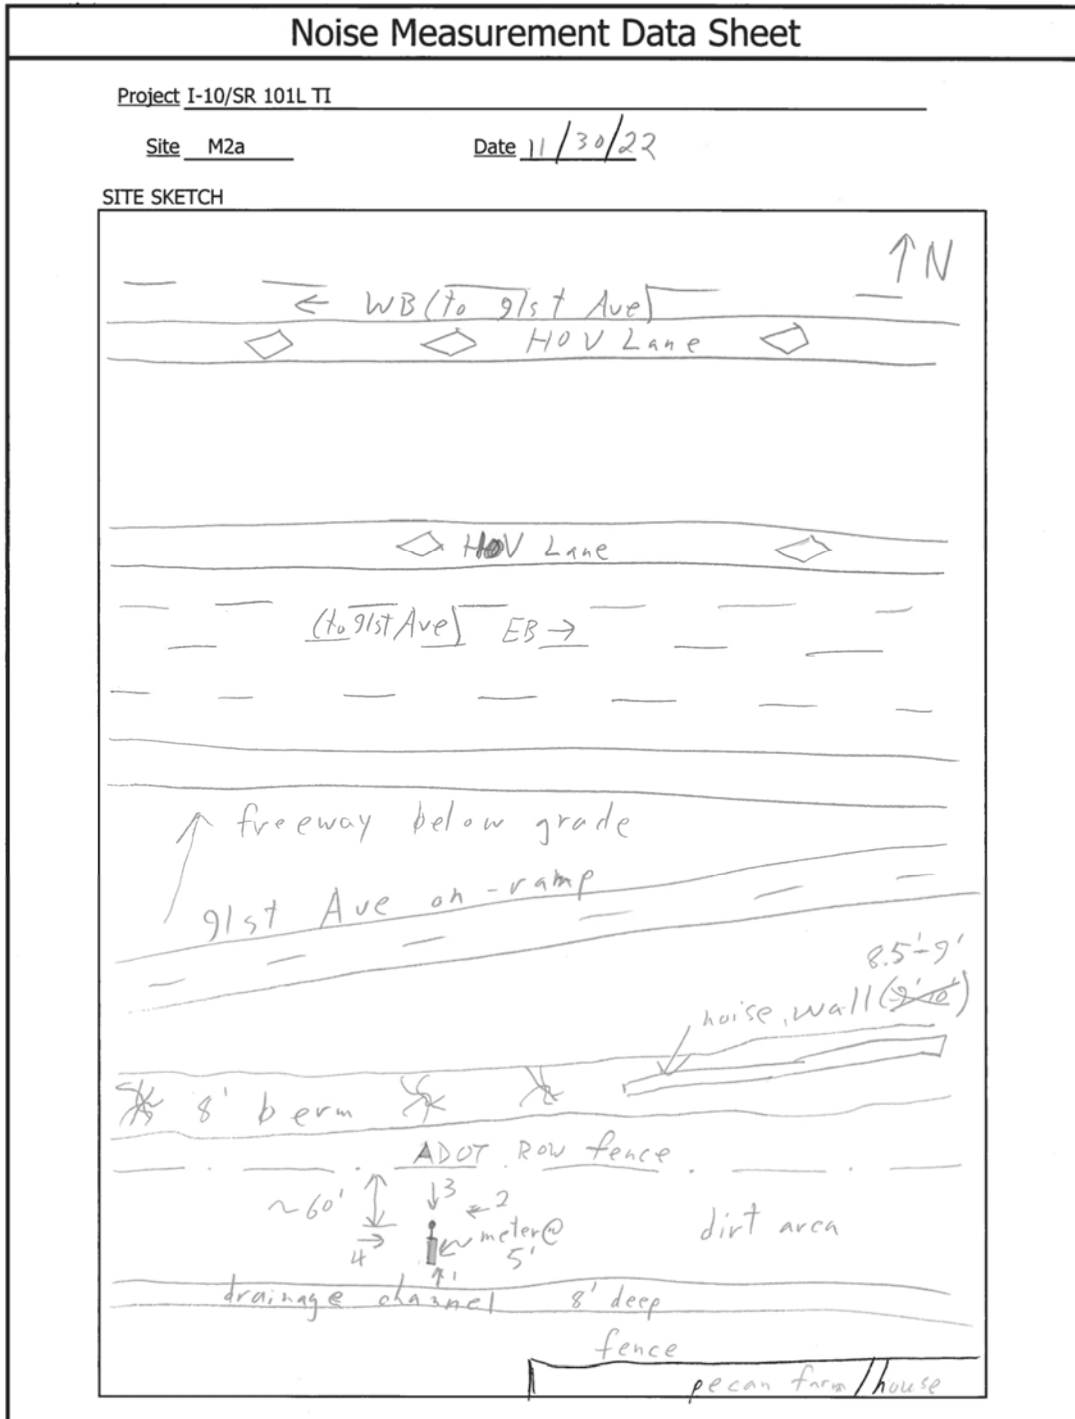 Noise Measurement Data Sheet
Project I-10/SR 101L TI
Site M2a Date 11/30/22
SITE SKETCH
↑N
← WB (to 91st Ave)
HOV Lane
HOV Lane
(to 91st Ave) EB →
freeway below grade
91st Ave on-ramp
8.5'-9'
noise wall (9'-10')
8' berm
ADOT ROW fence
~60' 3 2
4 meter@ dirt area
5'
1
drainage channel 8' deep
fence
pecan farm/house